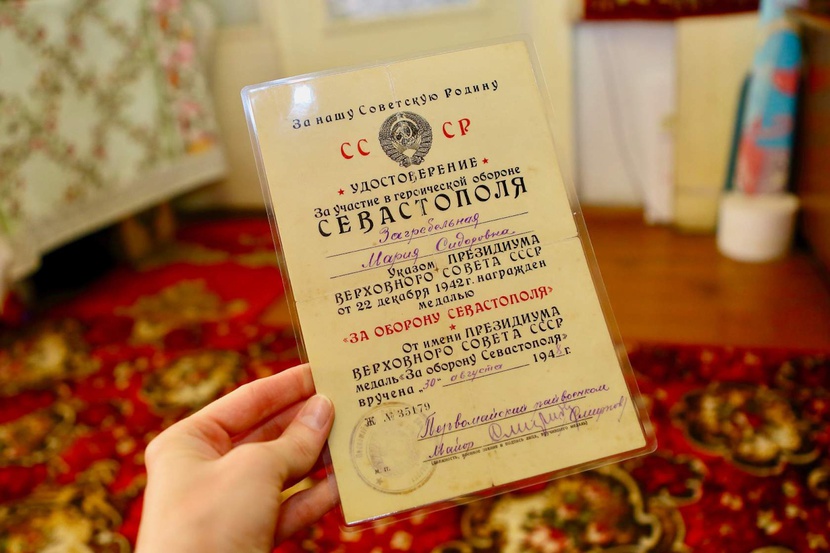 За нашу Советскую Родину
СС СР
УДОСТОВЕРЕНИЕ
За участие в героической обороне
СЕВАСТОПОЛЯ
Загребельная
Мария Сидоровна
Указом ПРЕЗИДИУМА
ВЕРХОВНОГО СОВЕТА СССР
от 22 декабря 1942 г. награжден
медалью
«ЗА ОБОРОНУ СЕВАСТОПОЛЯ»
От имени ПРЕЗИДИУМА
ВЕРХОВНОГО СОВЕТА СССР
медаль «За оборону Севастополя»
вручена „30“ августа 194 г.
Ж № 35179
Первомайский райвоенком
Майор Смирнов
М. П.
(должность, воинское звание и подпись лица, вручившего медаль)